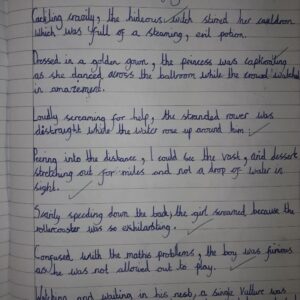 Cackling crazily, the hideous witch stirred her cauldron
which was full of a steaming, evil potion.
Dressed in a golden gown, the princess was captivating
as she danced across the ballroom while the crowd watched
in amazement.
Loudly screaming for help, the stranded rower was
distraught while the water rose up around him.
Peering into the distance, I could see the vast, arid dessert
stretching out for miles and not a drop of water in
sight.
speeding down the the girl screamed because the
rollercoaster was so exhilarating.
Confused with the maths problems, the boy was furious
as he was not allowed out to play.
and waiting in his nest, a single vulture was